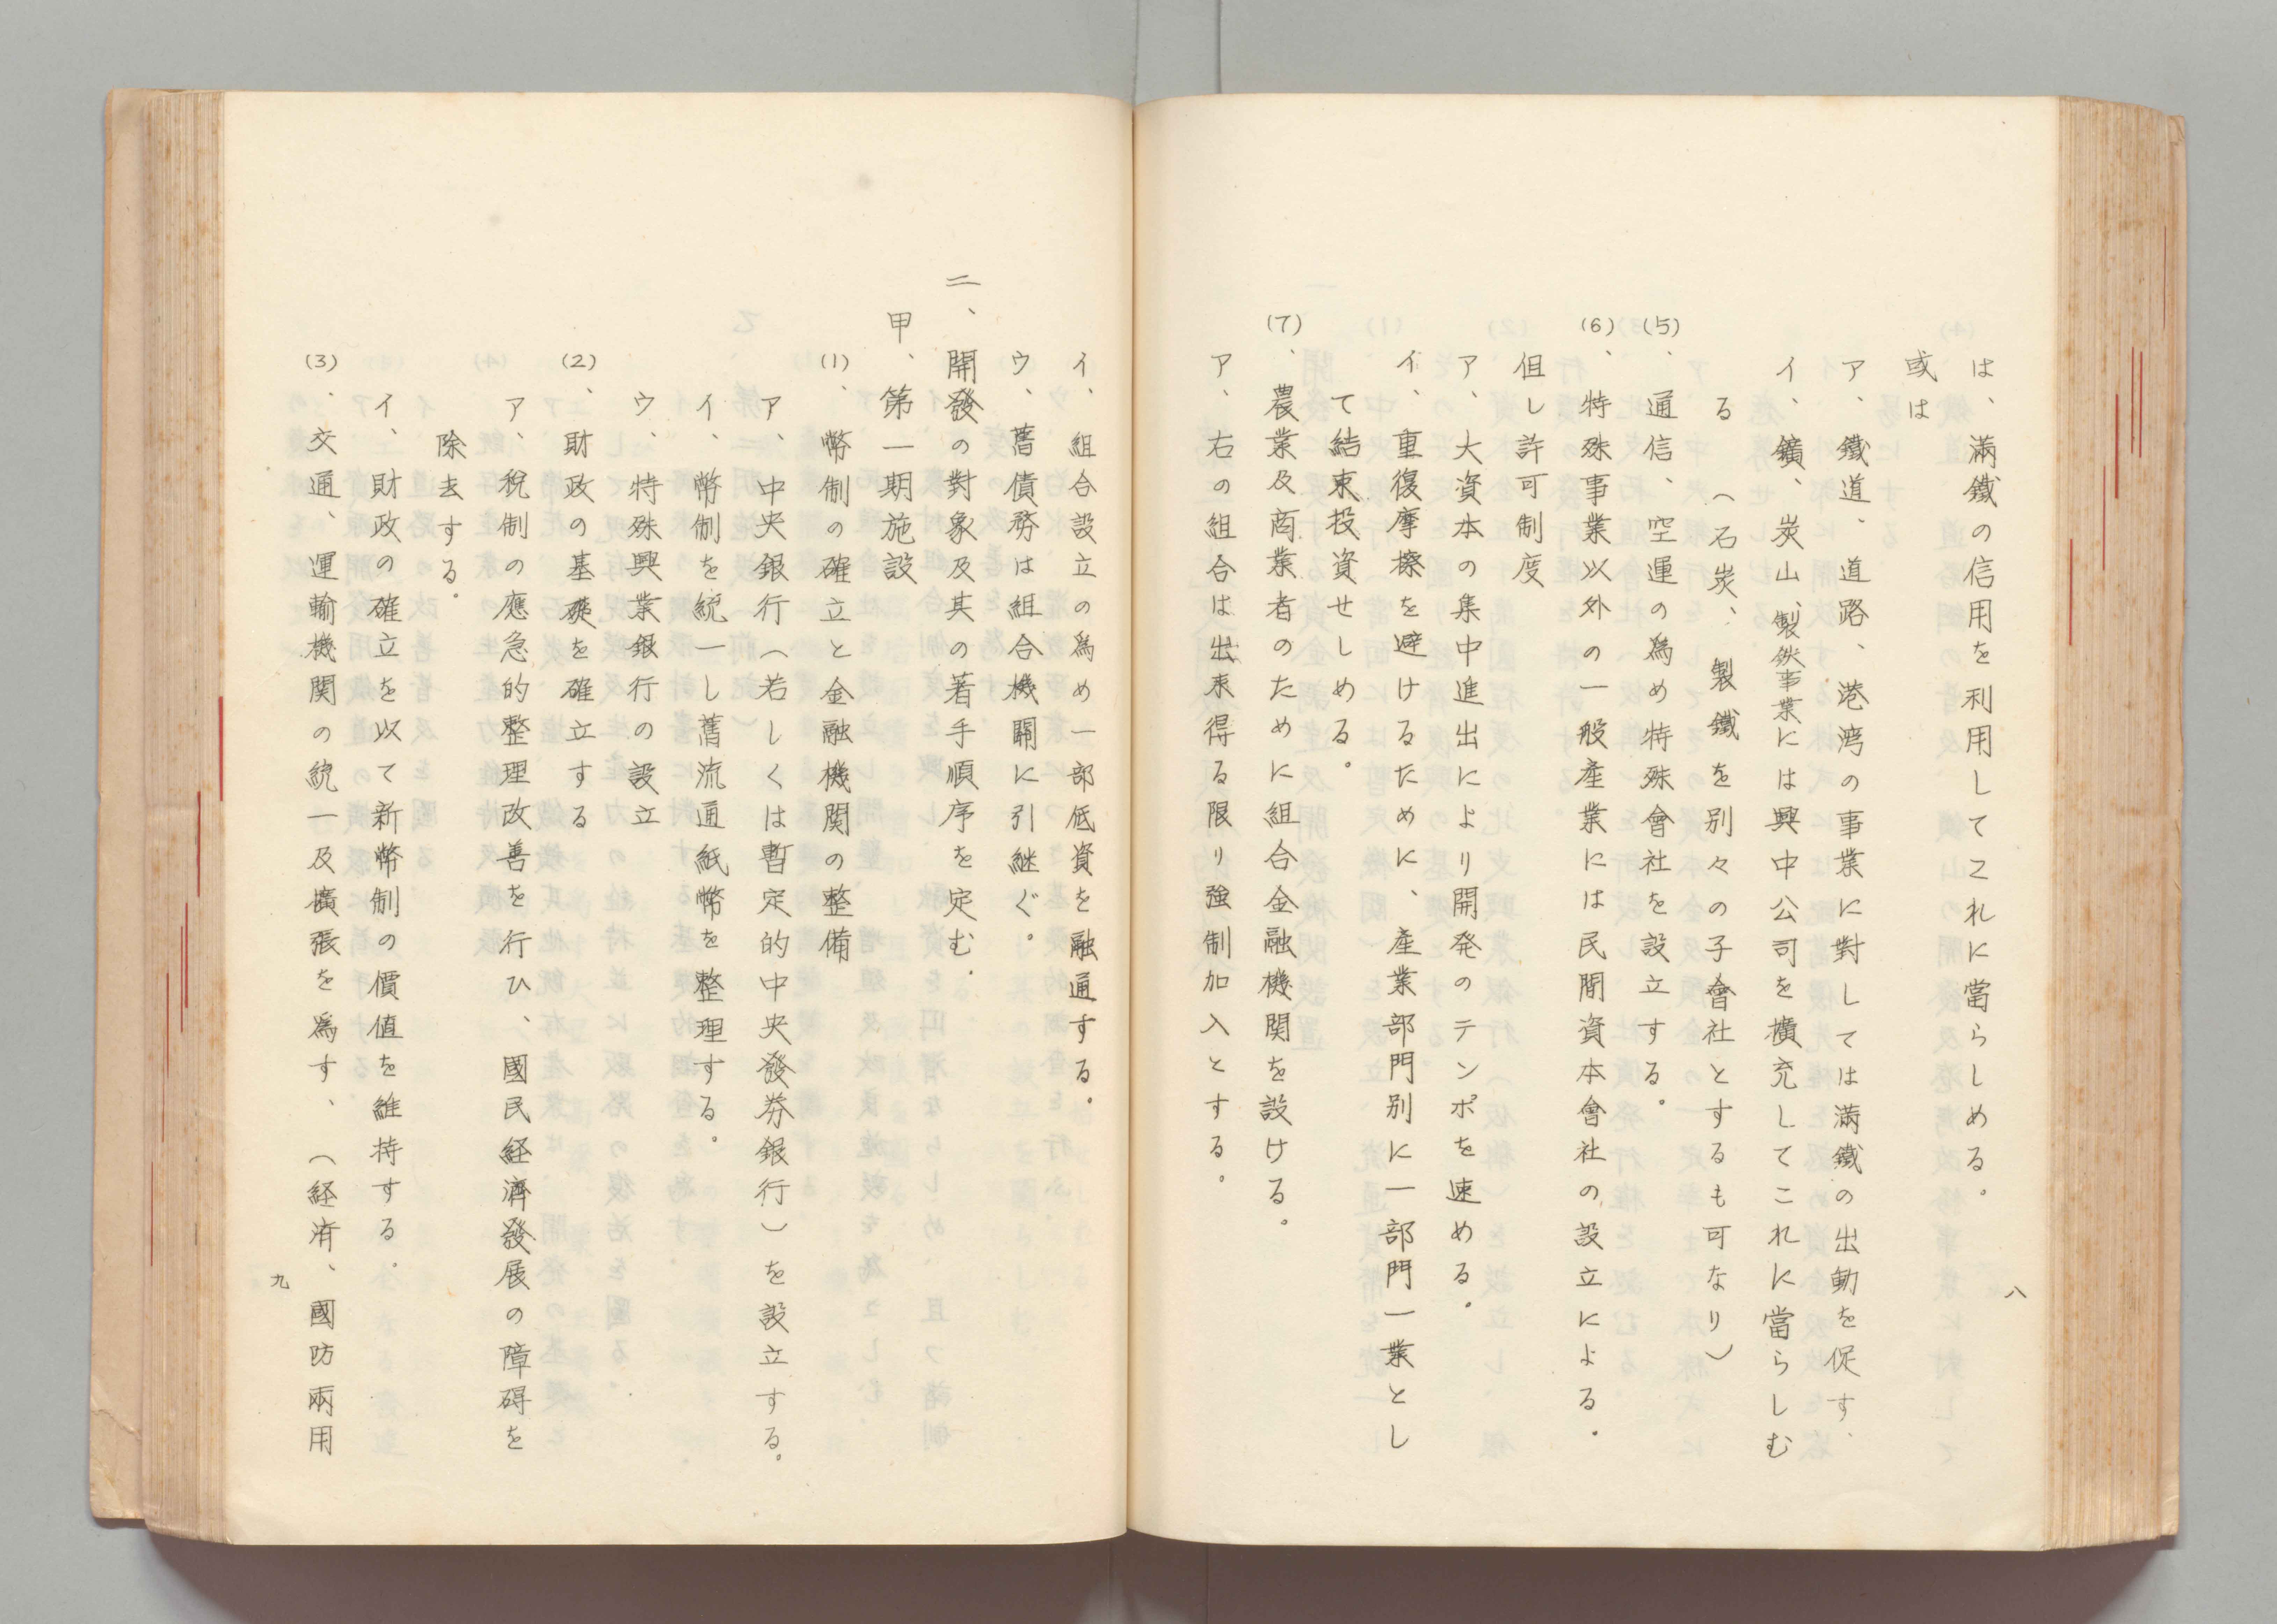 は、滿鐵の信用を利用してこれに當らしめる。
或は
ア、鐵道、道路、港湾の事業に對しては滿鐵の出動を促す、
イ、鑛、炭山、製鉄事業には興中公司を擴充してこれに當らしむ
る（石炭、製鐵を別々の子會社とするも可なり）
(5)、通信、空運の為め特殊會社を設立する。
(6)、特殊事業以外の一般産業には民間資本會社の設立による。
但し許可制度
ア、大資本の集中進出により開発のテンポを速める。
イ、重復摩擦を避けるために、産業部門別に一部門一業とし
て結束投資せしめる。
(7)、農業及商業者のために組合金融機関を設ける。
ア、右の組合は出来得る限り強制加入とする。
八
イ、組合設立の為め一部低資を融通する。
ウ、舊債務は組合機關に引継ぐ。
二、開發の對象及其の著手順序を定む.
甲、第一期施設
(1)、幣制の確立と金融機関の整備
ア、中央銀行（若しくは暫定的中央發券銀行）を設立する。
イ、幣制を統一し舊流通紙幣を整理する。
ウ、特殊興業銀行の設立
(2)、財政の基礎を確立する
ア、税制の應急的整理改善を行ひ、國民経濟發展の障碍を
除去する。
イ、財政の確立を以て新幣制の價値を維持する。
(3)、交通、運輸機関の統一及擴張を為す、（経済、國防兩用
九